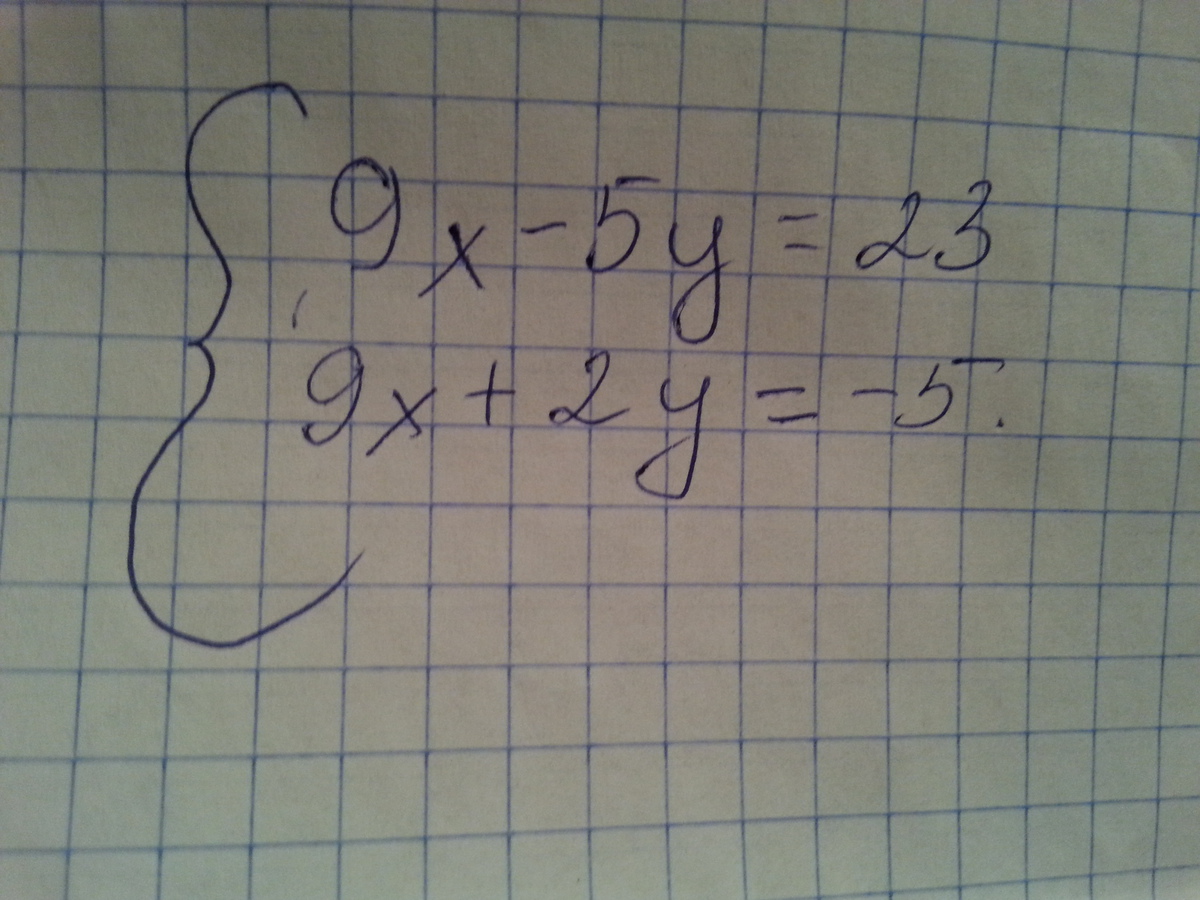 9x - 5y = 23
9x + 2y = -5.